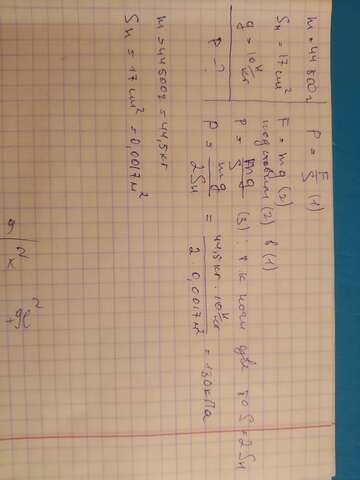 m = 44 500 г
Sн = 17 см²
g = 10 Н/кг
P - ?
P = F/S (1)
F = mg (2)
подставим (2) в (1)
P = mg/S (3) т к ноги две то S = 2Sн
P = mg/2Sн = 44,5 кг · 10 Н/кг / 2 0,0017 м² = 130 кПа
m = 44500г = 44,5 кг
Sн = 17 см² = 0,0017 м²